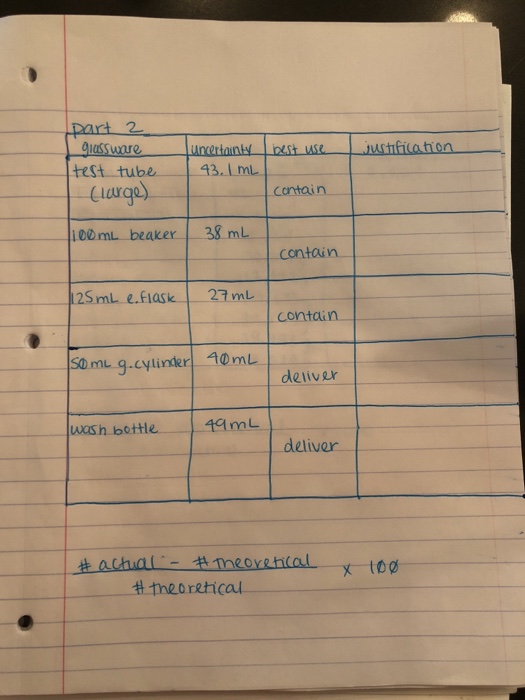 part 2
glassware uncertainty best use justification
test tube 43.1 mL
(large) contain
100mL beaker 38 mL
contain
125mL e.flask 27mL
contain
50mL g.cylinder 40mL
deliver
wash bottle 49mL
deliver
# actual - # theoretical x 100
# theoretical